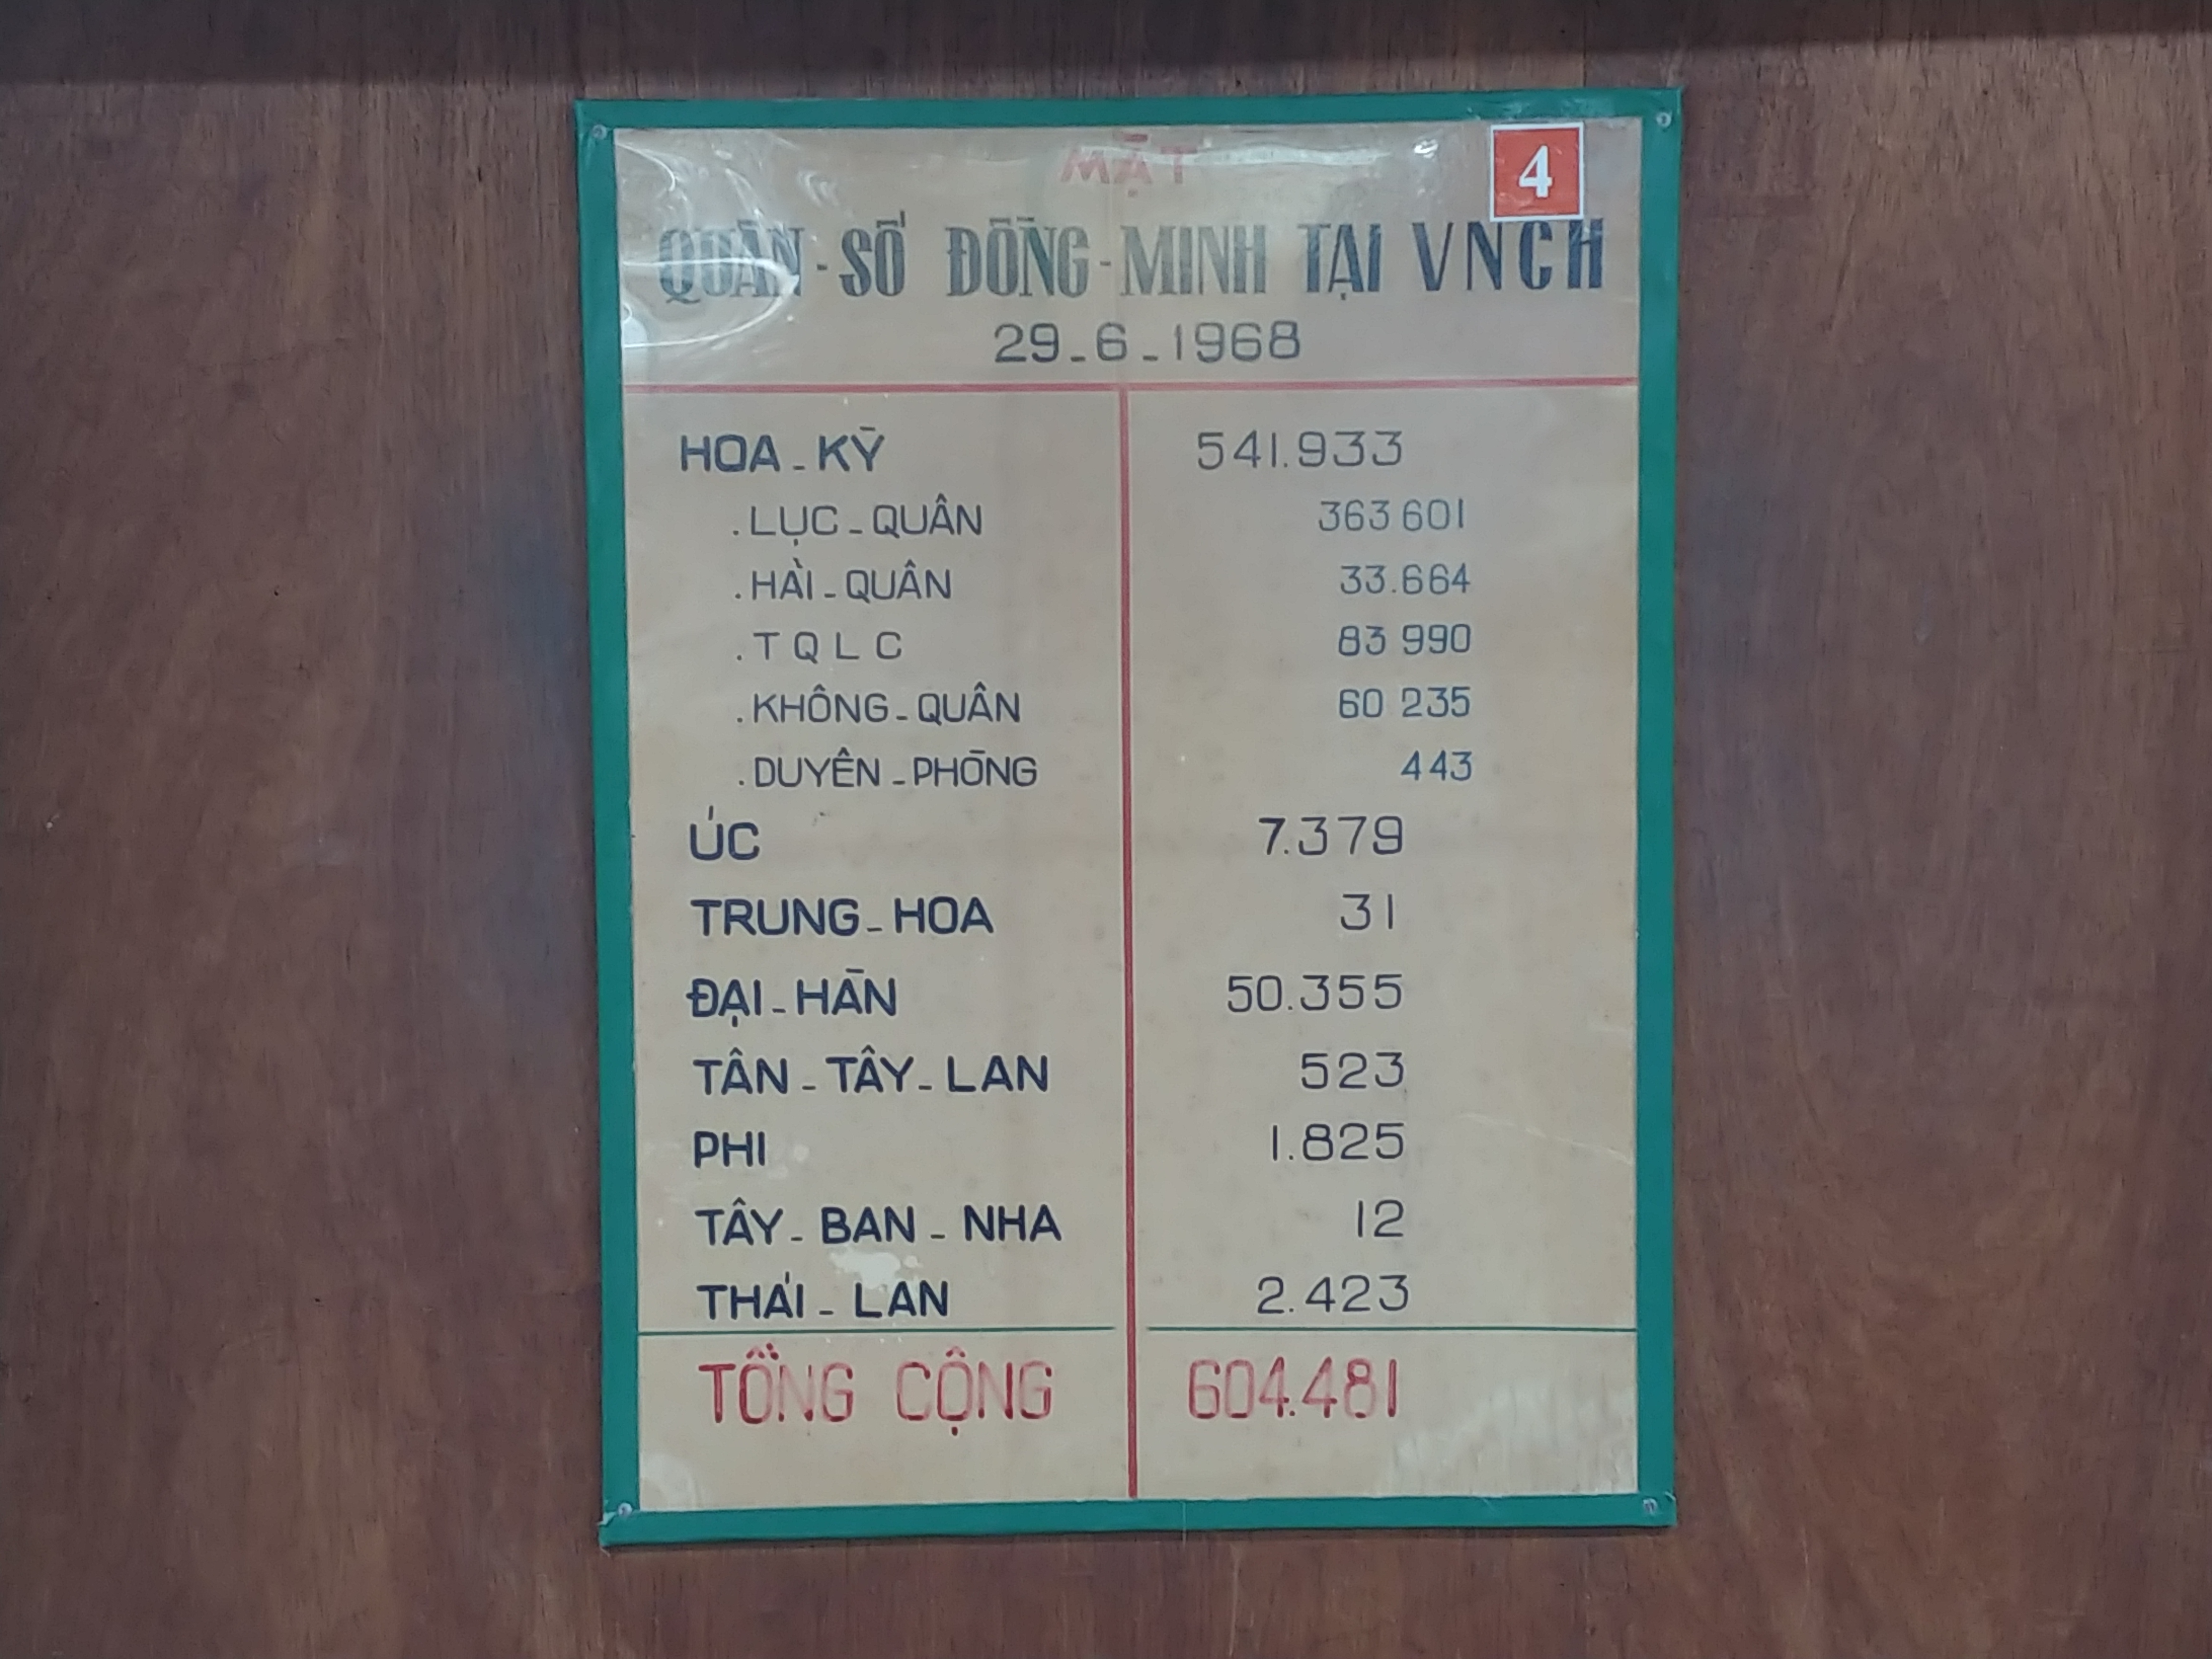 MẬT
4
QUÂN-SỐ ĐỒNG-MINH TẠI VNCH
29-6-1968
HOA-KỲ 541.933
.LỤC-QUÂN 363 601
.HẢI-QUÂN 33.664
.TQLC 83 990
.KHÔNG-QUÂN 60 235
.DUYÊN-PHÒNG 443
ÚC 7.379
TRUNG-HOA 31
ĐẠI-HÀN 50.355
TÂN-TÂY-LAN 523
PHI 1.825
TÂY-BAN-NHA 12
THÁI-LAN 2.423
TỔNG CỘNG 604.481